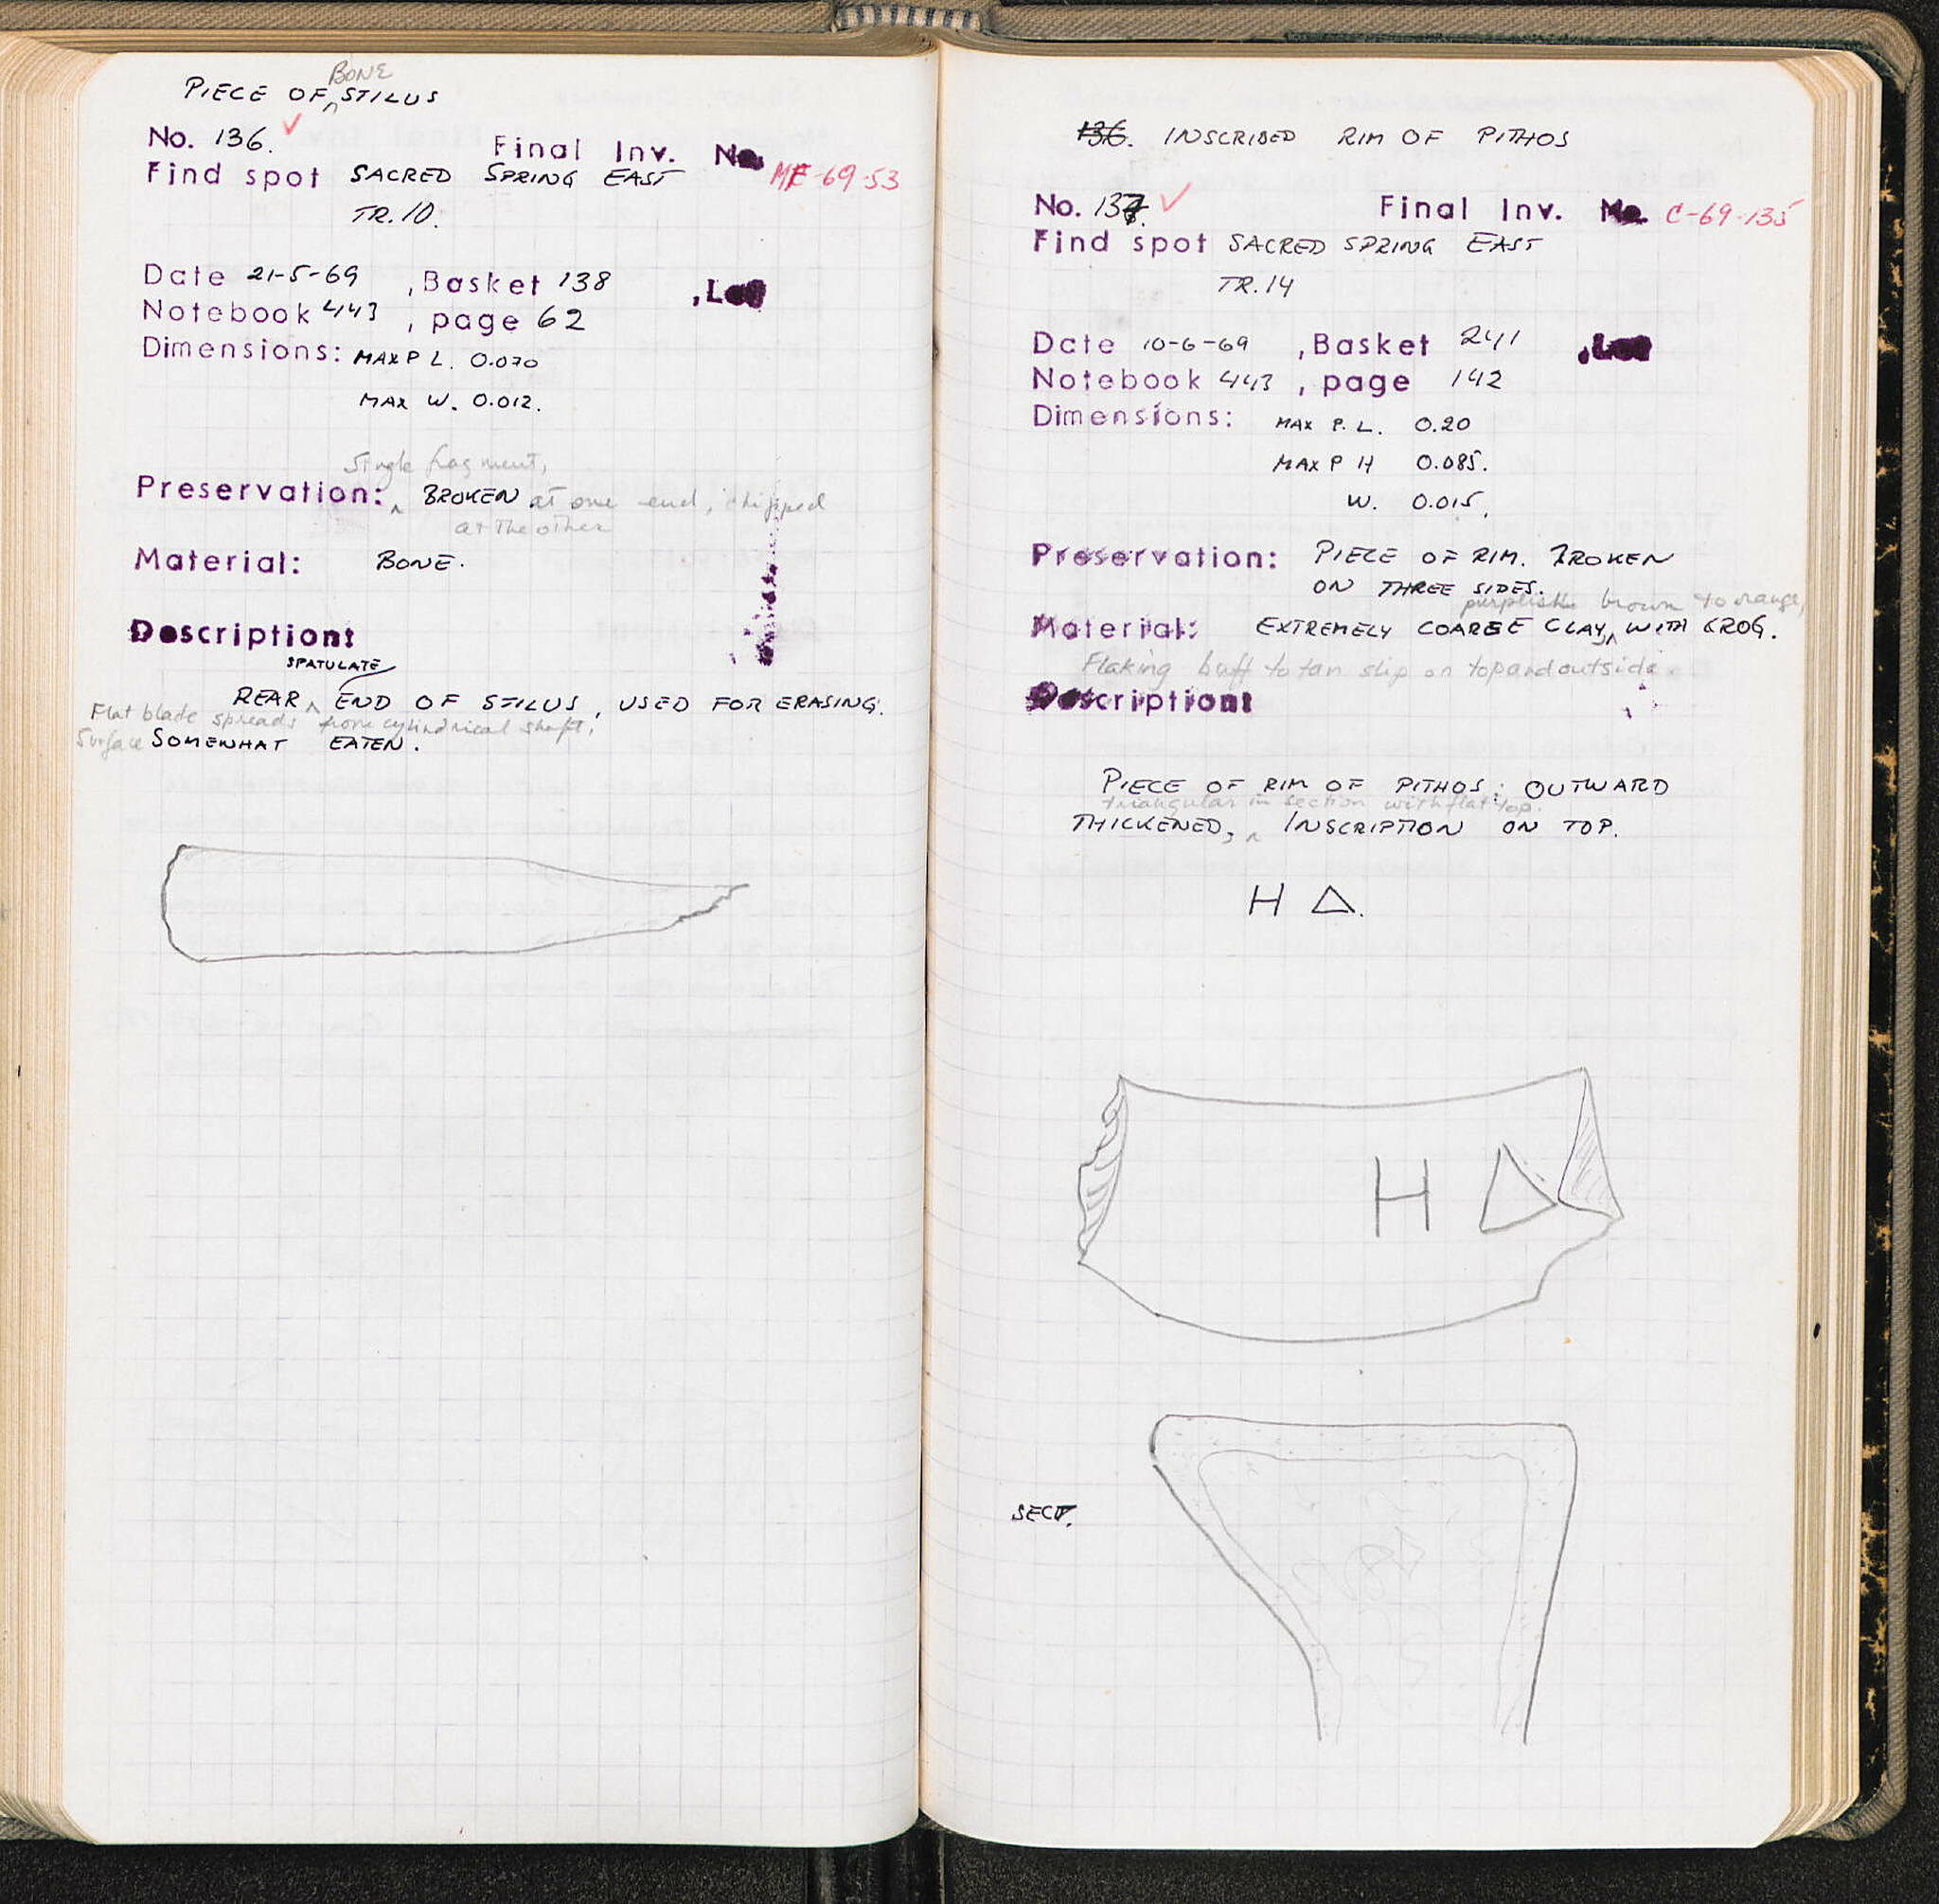 PIECE OF BONE STILUS
No. 136. Final Inv. No. MF-69-53
Find spot SACRED SPRING EAST
TR.10.
Date 21-5-69 , Basket 138 , Lot
Notebook 443 , page 62
Dimensions: MAX P L. 0.070
MAX W. 0.012.
Single fragment,
Preservation: BROKEN at one end, chipped
at the other
Material: BONE.
Description:
SPATULATE
REAR END OF STILUS, USED FOR ERASING.
Flat blade spreads from cylindrical shaft,
Surface SOMEWHAT EATEN.
136. INSCRIBED RIM OF PITHOS
No. 137. Final Inv. No. C-69-135
Find spot SACRED SPRING EAST
TR.14
Date 10-6-69 , Basket 241 , Lot
Notebook 443 , page 142
Dimensions: MAX P. L. 0.20
MAX P H 0.085.
W. 0.015.
Preservation: PIECE OF RIM. BROKEN
ON THREE SIDES.
purplish brown to orange,
Material: EXTREMELY COARSE CLAY, WITH GROG.
Flaking buff to tan slip on top and outside.
Description:
PIECE OF RIM OF PITHOS: OUTWARD
triangular in section with flat top.
THICKENED, INSCRIPTION ON TOP.
H Δ.
H Δ
SECT.